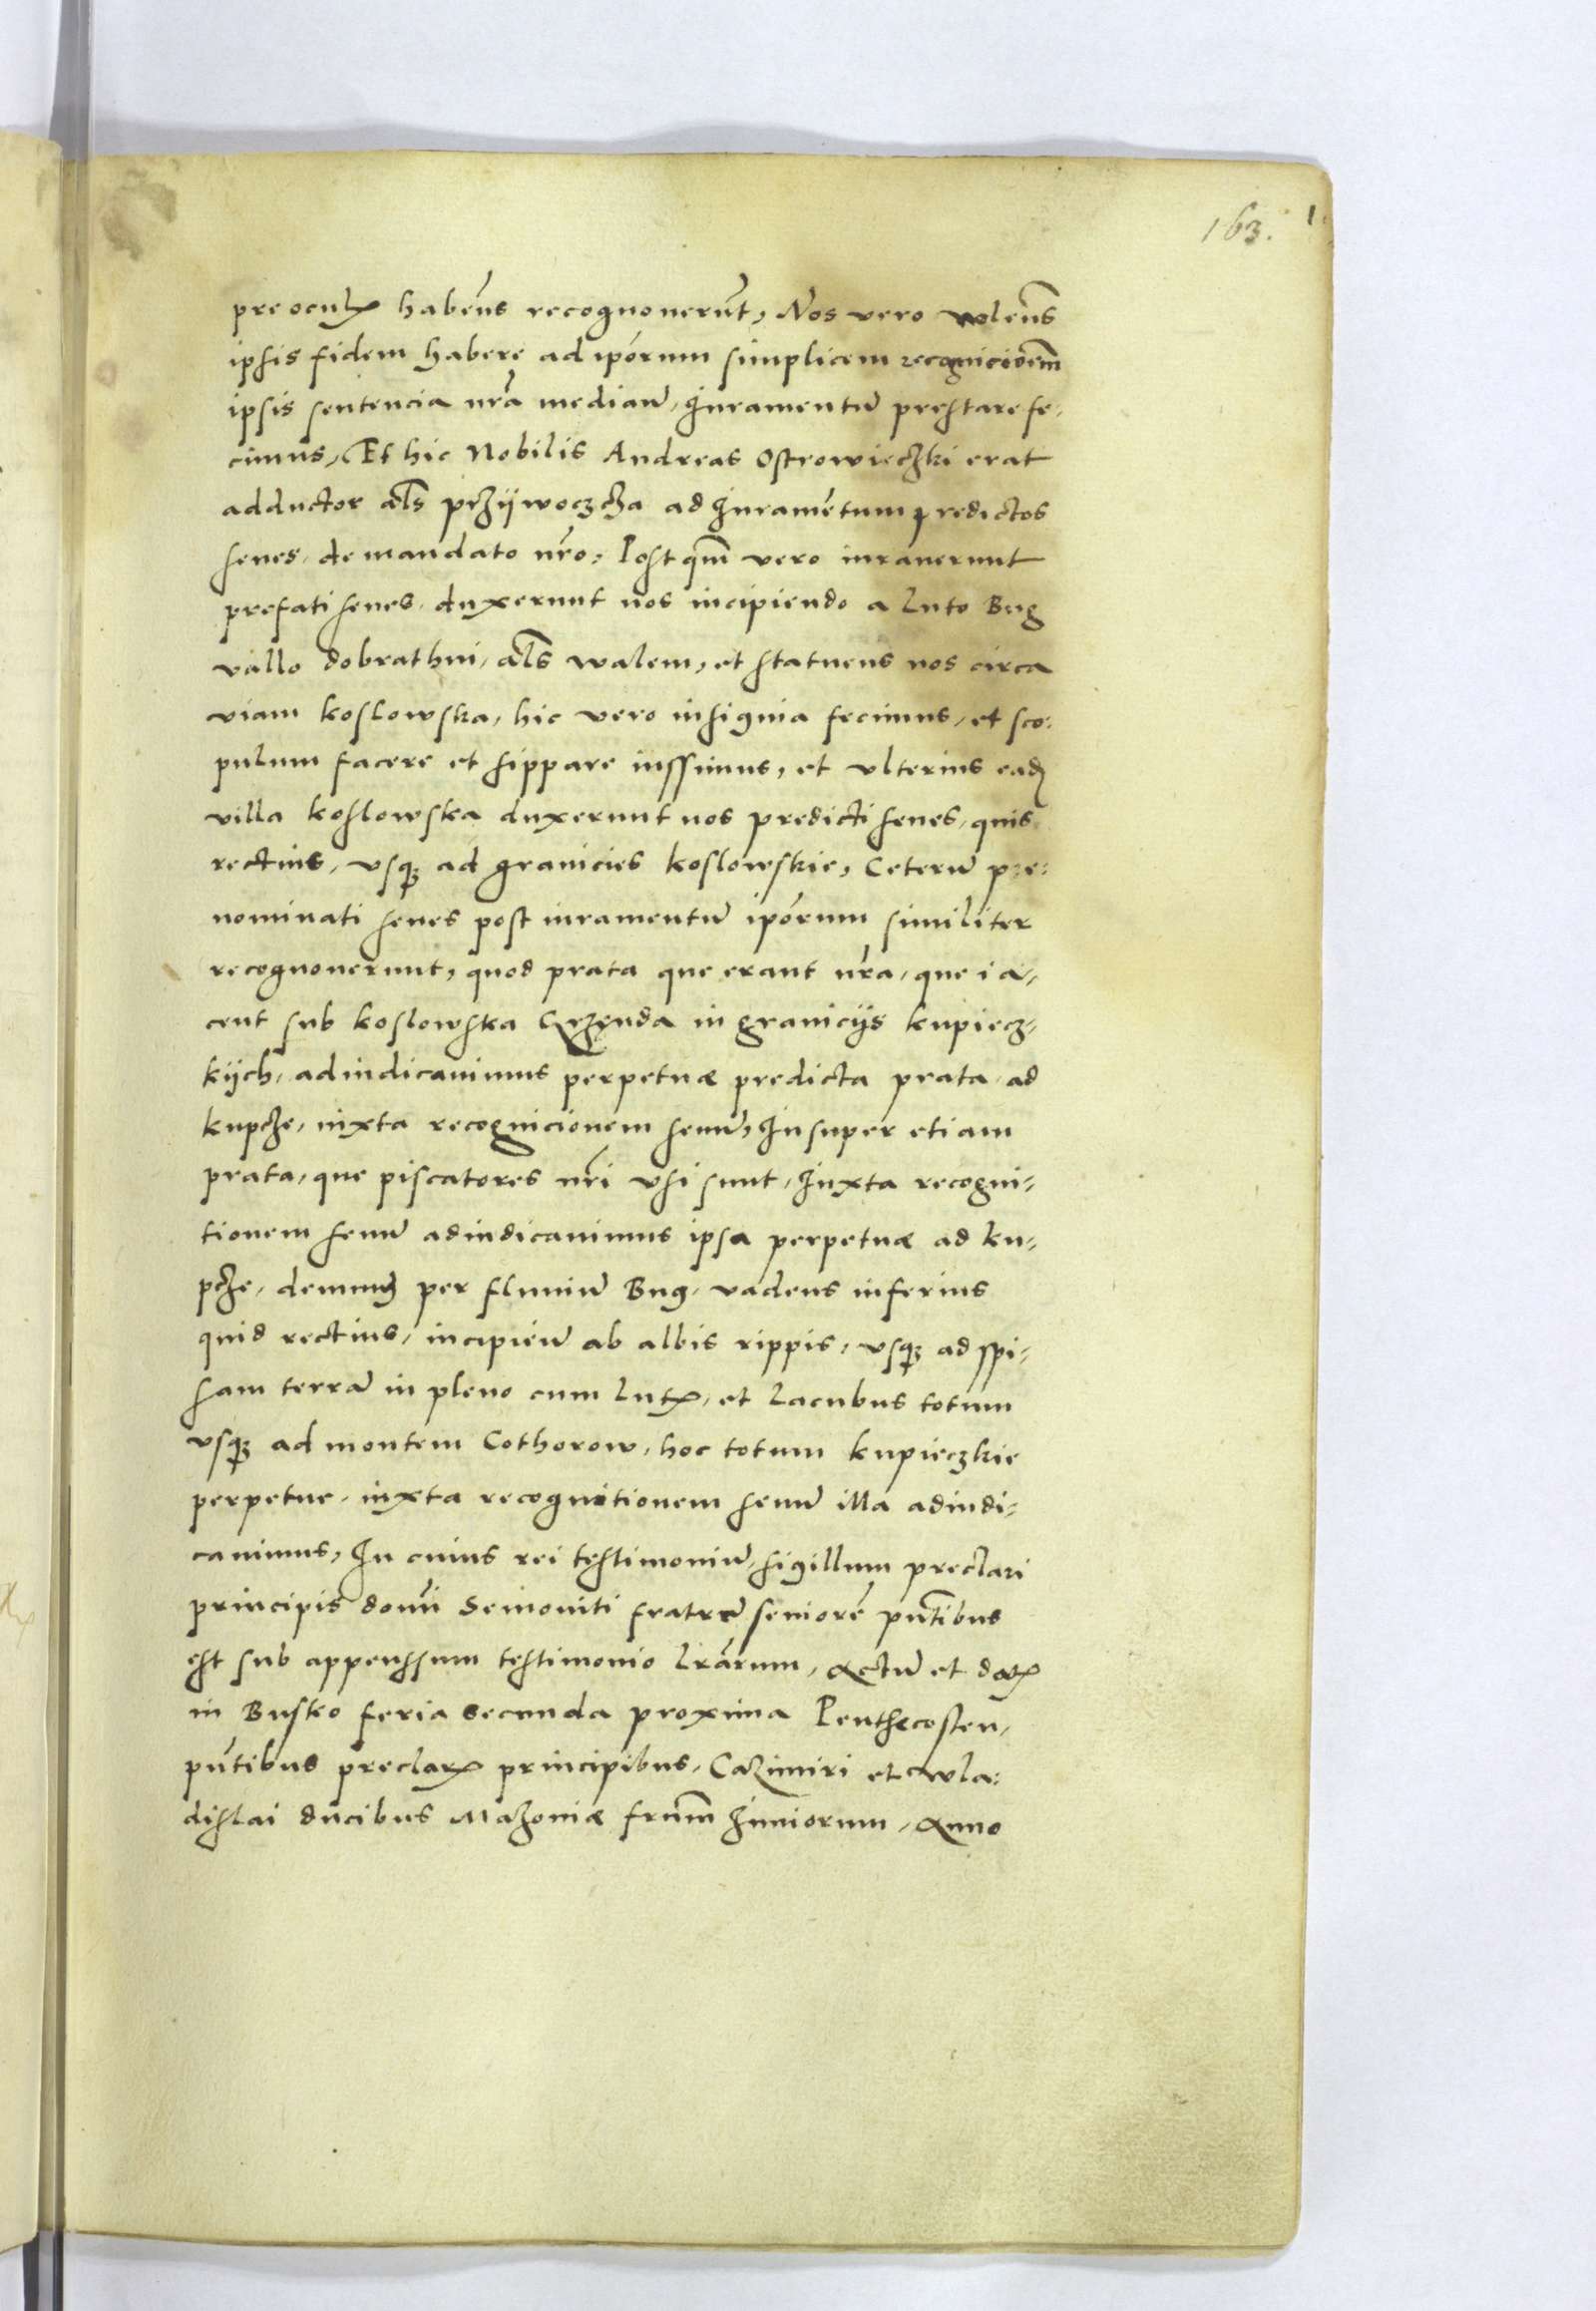 163. 1
pre oculꝭ habēns recognouerūt, Nos vero nolēns
ipsis fidem habere ad ipōrum simplicem recognicioēm
ipsis sentencia nrā mediaū, Iuramentū prestare fe-
cimus, Et hic Nobilis Andreas Ostrowieczki erat
adductor al̄s przÿwoczcza ad Iuramētum predictos
senes, de mandato nr̄o: Post qm̄ vero iurauerunt
prefati senes, duxerunt nos incipiendo a Luto Bug
vallo dobrathni, al̄s walem, et statuens nos circa
viam koslowska, hic vero insignia fecimus, et sco-
pulum facere et sippare iussimus, et vlterius eadꝫ
villa koslowska duxerunt nos predicti senes, quis
rectius, vsqꝫ ad granicies koslowskie, Ceterū pre-
nominati senes post iuramentū ipōrum similiter
recognouerunt, quod prata que erant nr̄a, que ia-
cent sub koslowska Grzęnda in granicÿs kupiecz-
kÿch, adiudicauimus perpetuæ predicta prata ad
kupcze, iuxta recognicionem senū, Insuper etiam
prata, que piscatores nr̄i vsi sunt, Iuxta recogni-
tionem senū adiudicauimus ipsa perpetuæ ad ku-
pcze, demumꝫ per fluuiū Bug, vadens inferius
quid rectius, incipieū ab albis rippis, vsqꝫ ad spi-
sam terrā in pleno cum lutꝭ, et Lacubus totum
vsqꝫ ad montem Cothorow, hoc totum kupieczkie
perpetue, iuxta recognitionem senū illa adiudi-
cauimus, In cuius rei testimoniū, sigillum preclari
principis domī Semouiti fratrū seniorē pn̄tibus
est sub appenssum testimonio lrārum, Actū et datꝭ
in Busko feria Secunda proxima Penthecosten,
pn̄tibus preclarꝭ principibus, Cazimiri et wla-
dislai ducibus Mazouiæ frūm Iuniorum, Anno